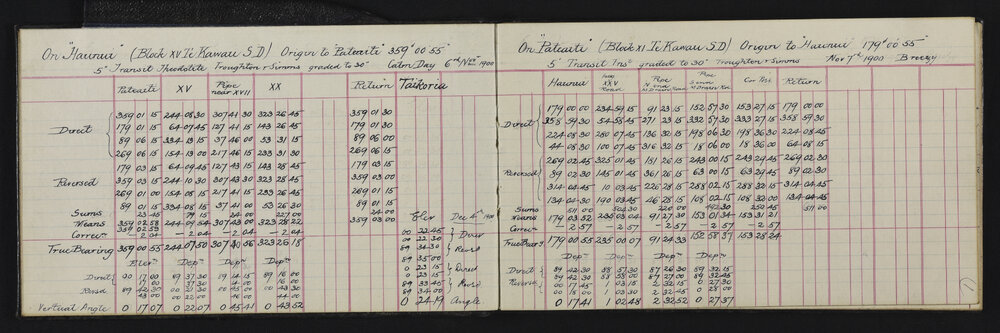 On "Haunui" (Block XV Te Kawau S.D) Origin to "Pateaiti" 359° 00' 55"
5" Transit Theodolite Troughton & Simms graded to 30" Calm Day 6th Nov 1900
Pateaiti XV Pipe near XVII XX Return Taikoria
359 01 15 244 08 30 307 41 30 323 26 45 359 01 30
Direct 179 01 15 64 07 45 127 41 15 143 26 45 179 01 30
89 06 15 334 13 15 37 46 00 53 31 15 89 06 00
269 06 15 154 13 00 217 46 15 233 31 30 269 06 15
179 03 15 64 09 45 127 43 15 143 28 45 179 03 15
Reversed 359 03 15 244 10 30 307 43 30 323 28 45 359 03 00
269 01 00 154 08 15 217 41 15 233 26 45 269 01 15
89 01 15 334 08 15 37 41 00 53 26 30 89 01 15
Sums 23 45 79 15 24 00 227 00 24 00
Means 359 02 58 244 09 54 307 43 00 323 28 22 359 03 00
359 02 59
Correcn - 2 04 - 2 04 - 2 04 - 2 04
True Bearing 359 00 55 244 07 50 307 40 56 323 26 18
Elevn Depn Depn Depn
Direct 90 17 00 89 37 30 89 14 15 89 16 00
Vertical Angle 0 17 07 0 22 07 0 45 41 0 43 52
Elev Dec 4th 1900
00 22 45
00 22 30 Direct
89 34 30 Revsd
89 35 00
0 23 15
0 23 15 Direct
89 33 45 Revsd
89 34 00
0 24 19 Angle
On "Pateaiti" (Block XI Te Kawau S.D) Origin to "Haunui" 179° 00' 55"
5" Transit Ins" graded to 30" Troughton & Simms Nov 7th 1900 Breezy
Haunui XXV Road Pipe N end Pipe S end Return
179 00 00 234 59 15 91 23 15 152 57 30 153 27 15 179 00 00
Direct 358 59 30 54 58 45 271 23 15 332 57 30 333 27 15 358 59 30
224 08 30 280 07 45 136 32 15 198 06 30 198 36 30 224 08 45
44 08 30 100 07 45 316 32 15 18 06 00 18 36 00 64 08 15
Reversed 269 02 45 325 01 45 181 26 15 243 00 15 243 29 45 269 02 30
89 02 30 145 01 45 361 26 15 63 00 15 63 29 45 89 02 30
314 04 45 10 03 45 226 28 15 288 02 15 288 32 15 314 04 45
134 04 30 190 03 45 46 28 15 108 02 15 108 32 00 134 04 45
Sums 511 00 504 30 220 00 492 30 250 45 511 00
Means 179 03 52 235 03 04 91 27 30 153 01 34 153 31 21
Correcn - 2 57 - 2 57 - 2 57 - 2 57 - 2 57
True Bearg 179 00 55 235 00 07 91 24 33 152 58 37 153 28 24
Depn Depn Depn Depn
Direct 89 42 30 88 57 30 87 26 30 89 32 15
89 42 30 88 58 00 87 27 00 89 32 45
Reverse 00 17 45 1 03 15 2 32 15 0 27 30
00 18 00 1 03 30 2 32 45 0 28 00
0 17 41 1 02 48 2 32 52 0 27 37
1